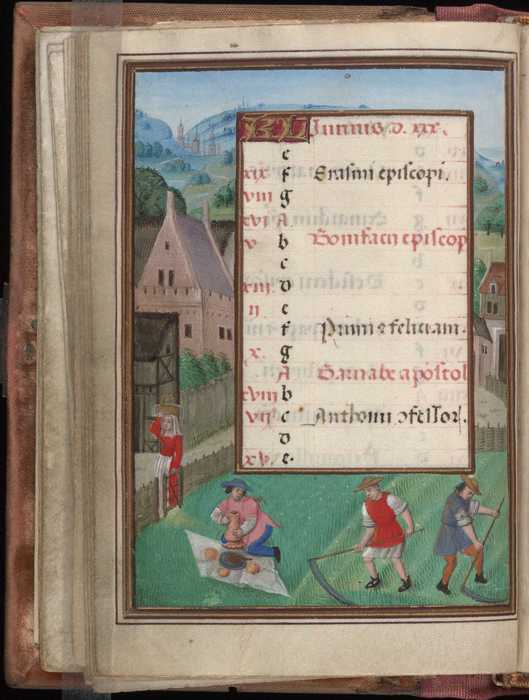 KL Iunius d. xxx.
e
xix f Erasmi episcopi.
viii g
xvi A
v b Bonifacii episcop
c
xiii d
ii e
f Primi & feliciani.
x. g
A Barnabe apostol
xviii b
vii c Anthonii ɔfessor.
d
xv. e.